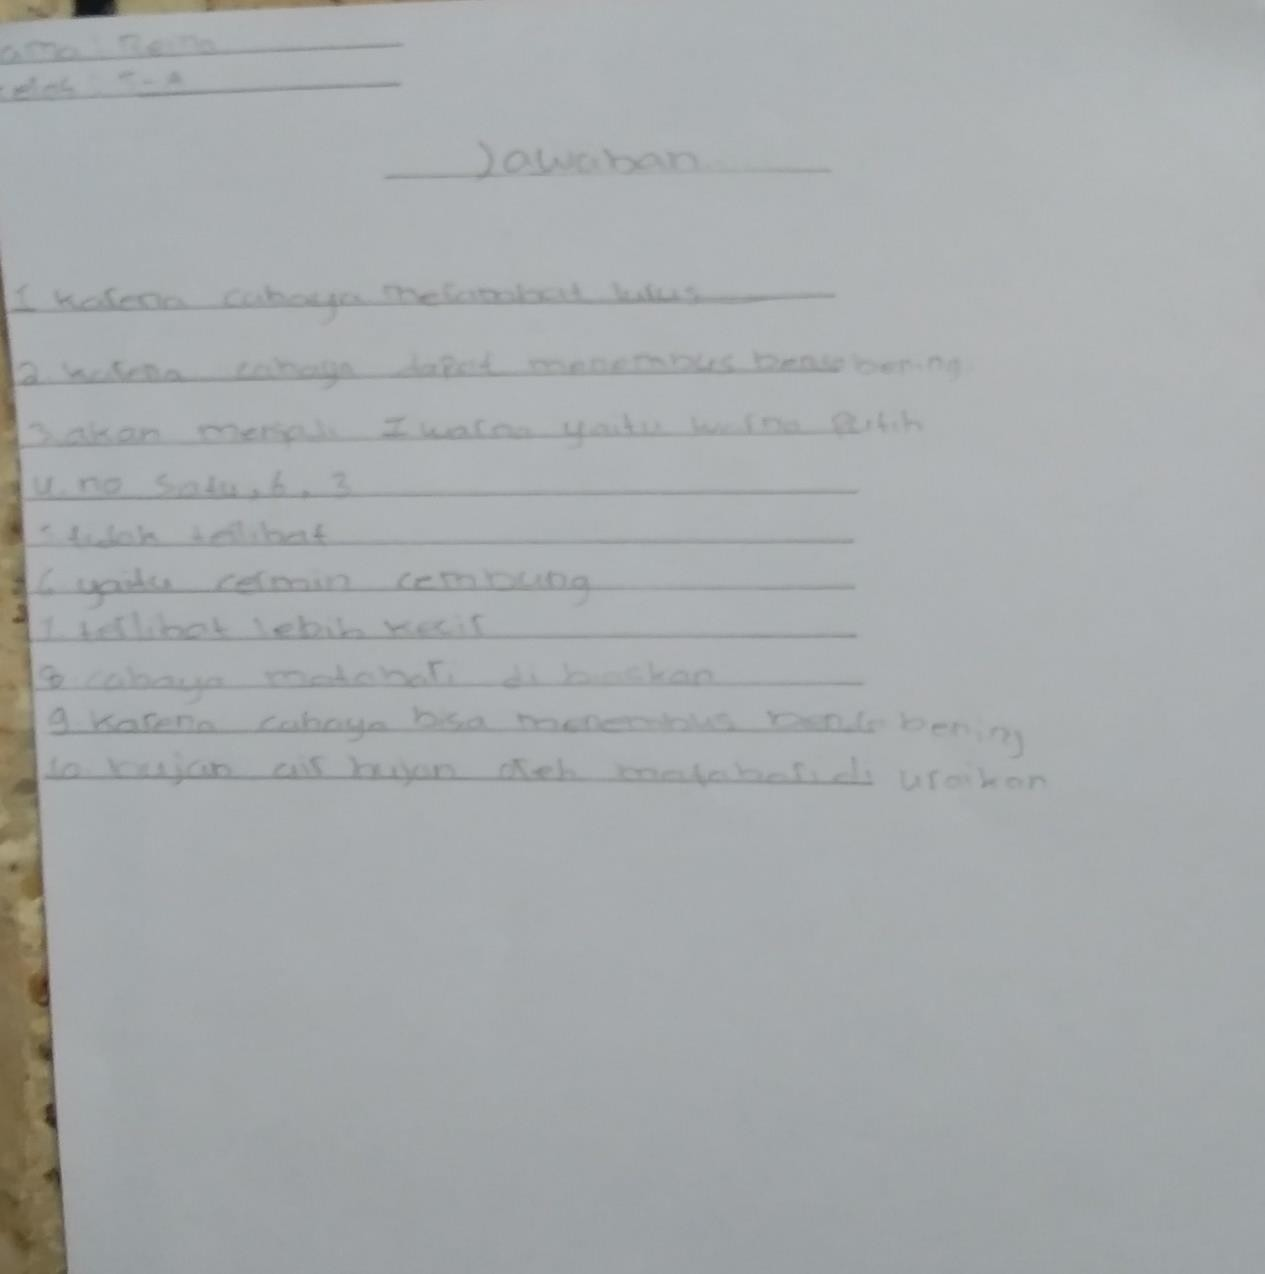 ama : Reina
elas : 5-A
Jawaban
1 karena cahaya merambat lurus
2 karena cahaya dapat menembus benda bening
3 akan menjadi I warna yaitu warna Putih
4. no satu, 6, 3
5 tidak terlihat
6 yaitu cermin cembung
7. terlihat lebih kecil
8 cahaya matahari di biaskan
9 karena cahaya bisa menembus benda bening
10 hujan air hujan oleh matahari di uraikan